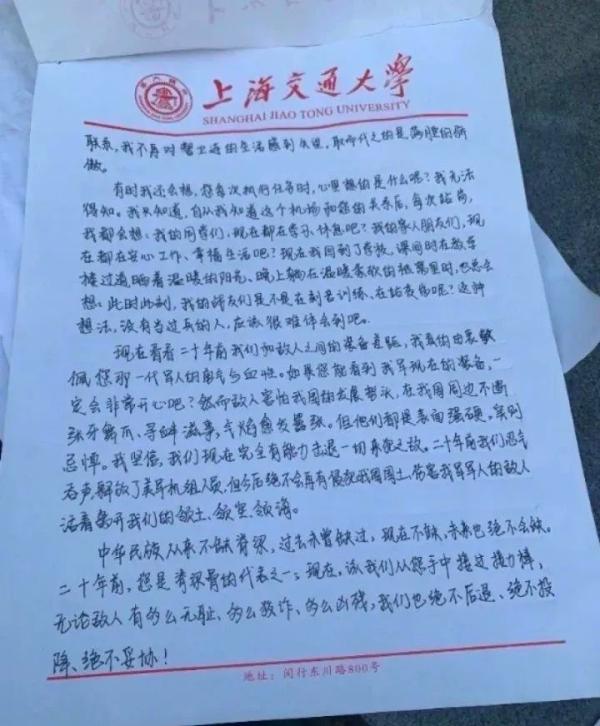 上海交通大學
SHANGHAI JIAO TONG UNIVERSITY
联系,我不再对警卫连的生活感到失望,取而代之的是满腔的骄
傲。
有时我还会想,您每次执行任务时,心里想的是什么呢?我无法
得知。我只知道,自从我知道这个机场和您的关系后,每次站岗,
我都会想:我的同学们,现在都在学习、休息吧?我的家人朋友们,现
在都在安心工作、幸福生活吧?现在我回到了学校,课间时在教学
楼过道晒着温暖的阳光、晚上躺在温暖柔软的被窝里时,也总会
想:此时此刻,我的战友们是不是在刻苦训练、在站夜岗呢?这种
想法,没有当过兵的人,应该很难体会到吧。
现在看看二十年前我们和敌人之间的装备差距,我真的由衷敬
佩您那一代军人的勇气与血性。如果您能看到我军现在的装备,一
定会非常开心吧?然而敌人害怕我国的发展势头,在我国周边不断
张牙舞爪、寻衅滋事,气焰愈发嚣张。但他们都是表面强硬,实则
忌惮。我坚信,我们现在完全有能力击退一切来犯之敌。二十年前我们忍气
吞声,释放了美军机组人员,但今后绝不会再有侵犯我国国土、伤害我军军人的敌人
活着离开我们的领土、领空、领海。
中华民族从来不缺脊梁,过去未曾缺过,现在不缺,未来也绝不会缺。
二十年前,您是脊梁骨的代表之一;现在,该我们从您手中接过接力棒,
无论敌人有多么无耻、多么狡诈、多么凶残,我们也绝不后退、绝不投
降、绝不妥协!
地址:闵行东川路800号